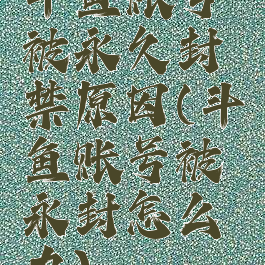 斗鱼账号
被永久封
禁原因(斗
鱼账号被
永封怎么
办)